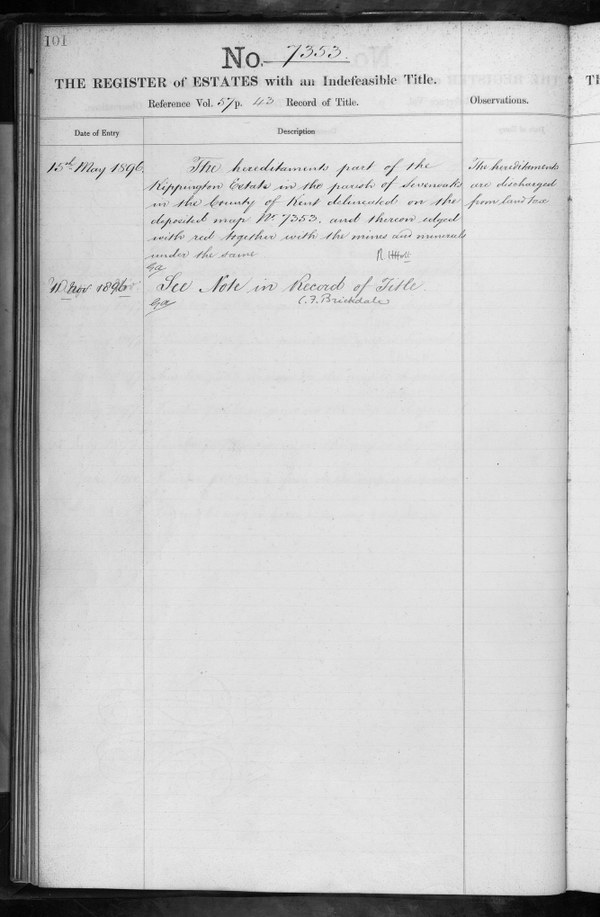 101
No. 7353.
THE REGISTER of ESTATES with an Indefeasible Title.
Reference Vol. 57 p. 43 Record of Title.
Observations.
Date of Entry
Description
15th May 1896.
The hereditaments part of the
Kippington Estate in the parish of Sevenoaks
in the County of Kent delineated on the
deposited map No. 7353. and thereon edged
with red together with the mines and minerals
under the same
The hereditaments
are discharged
from land tax
1896
See Note in Record of Title
C. F. Brickdale